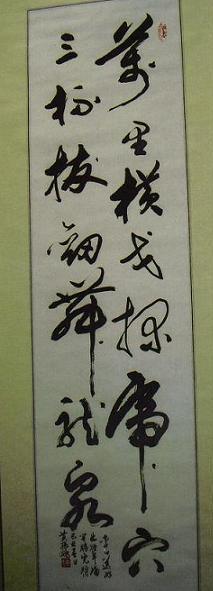 萬里橫戈探虎穴
三杯拔劍舞龍泉